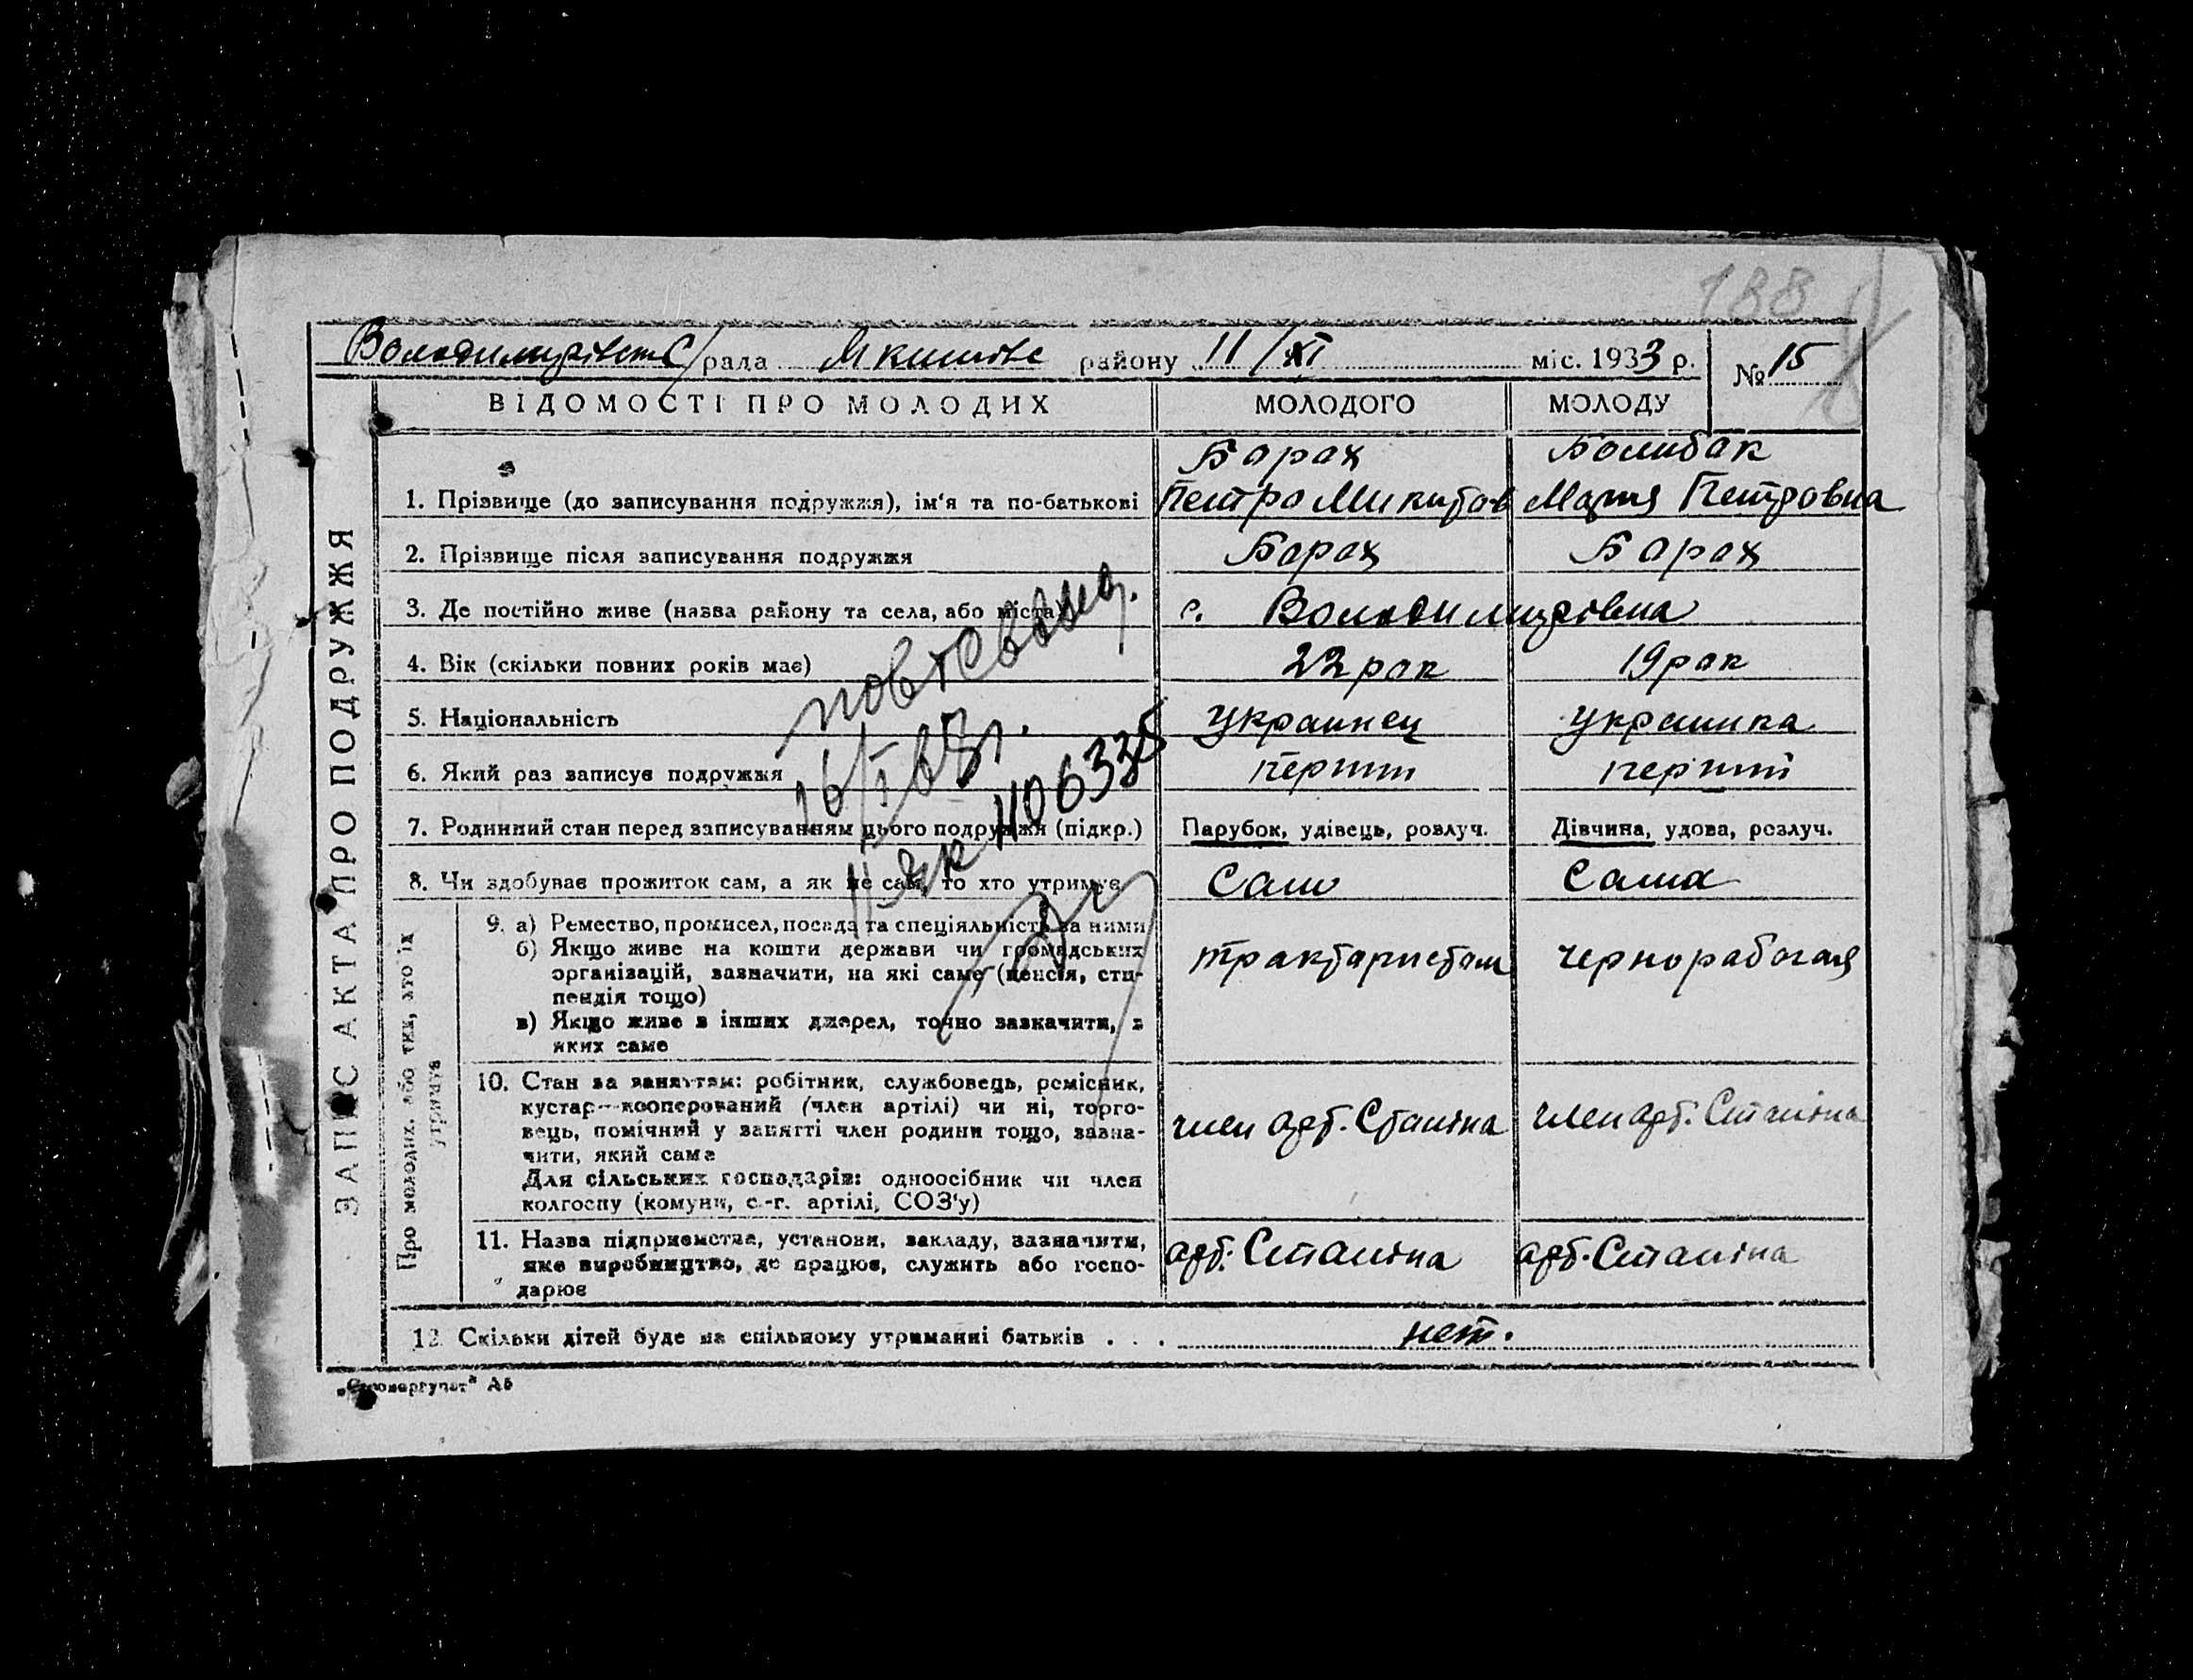 188
Володимирівст С/рада Якимівс району 11/XI міс. 1933 р.
№ 15
ВІДОМОСТІ ПРО МОЛОДИХ МОЛОДОГО МОЛОДУ
ЗАПИС АКТА ПРО ПОДРУЖЖЯ
Барах Болибак
1. Прізвище (до записування подружжя), ім'я та по-батькові Петро Микитов Мария Петровна
2. Прізвище після записування подружжя Барах Барах
3. Де постійно живе (назва району та села, або міста) с. Володимирівка
4. Вік (скільки повних років має) 22 рок 19 рок
5. Національність украинец украинка
6. Який раз записує подружжя перший перший
7. Родинний стан перед записуванням цього подружжя (підкр.) Парубок, удівець, розлуч. Дівчина, удова, розлуч.
8. Чи здобуває прожиток сам, а як не сам, то хто утримує Сам Сама
Про молодих, або тих, хто їх утримує
9. а) Ремество, промисел, посада та спеціяльність за ними
б) Якщо живе на кошти держави чи громадських
організацій, зазначити, на які саме (пенсія, сти-
пендія тощо)
трактористом чернорабочая
в) Якщо живе з інших джерел, точно зазначити, з
яких саме
10. Стан за заняттям: робітник, службовець, ремісник,
кустар—кооперований (член артілі) чи ні, торго-
вець, помічний у занятті член родини тощо, зазна-
чити, який саме
член арт. Сталіна член арт. Сталіна
Для сільських господарів: одноосібник чи член
колгоспу (комуни, с.-г. артілі, СОЗ'у)
11. Назва підприємства, установи, закладу, зазначити,
яке виробництво, де працює, служить або госпо-
дарює
арт. Сталіна арт. Сталіна
12. Скільки дітей буде на спільному утриманні батьків . . . нет.
16/I
110 6335